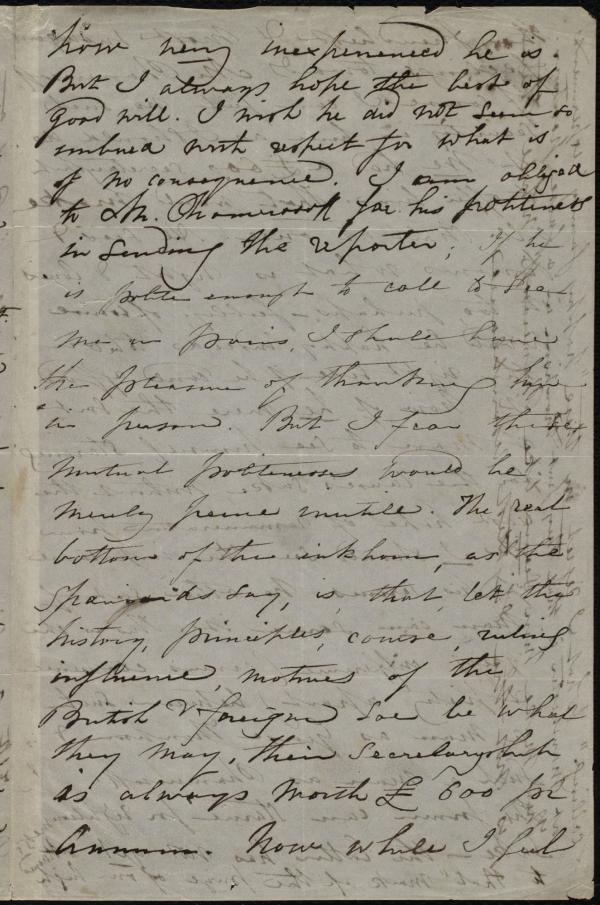 how very inexperienced he is.
But I always hope the best of
good will. I wish he did not seem so
imbued with respect for what is
of no consequence. I am obliged
to Mr. Chamerovzow for his politeness
in sending the reporter; if he
is polite enough to call to see
me in paris, I shall have
the pleasure of thanking him
in person. But I fear these
mutual politenesses would be
merely peine inutile. The real
bottom of the inkhorn, as the
Spaniards say, is, that, let the
history, principles, course, ruling
influence, motives of the
British & foreign Soc be what
they may, their Secretaryship
is always worth £600 pr
Annum. Now while I feel